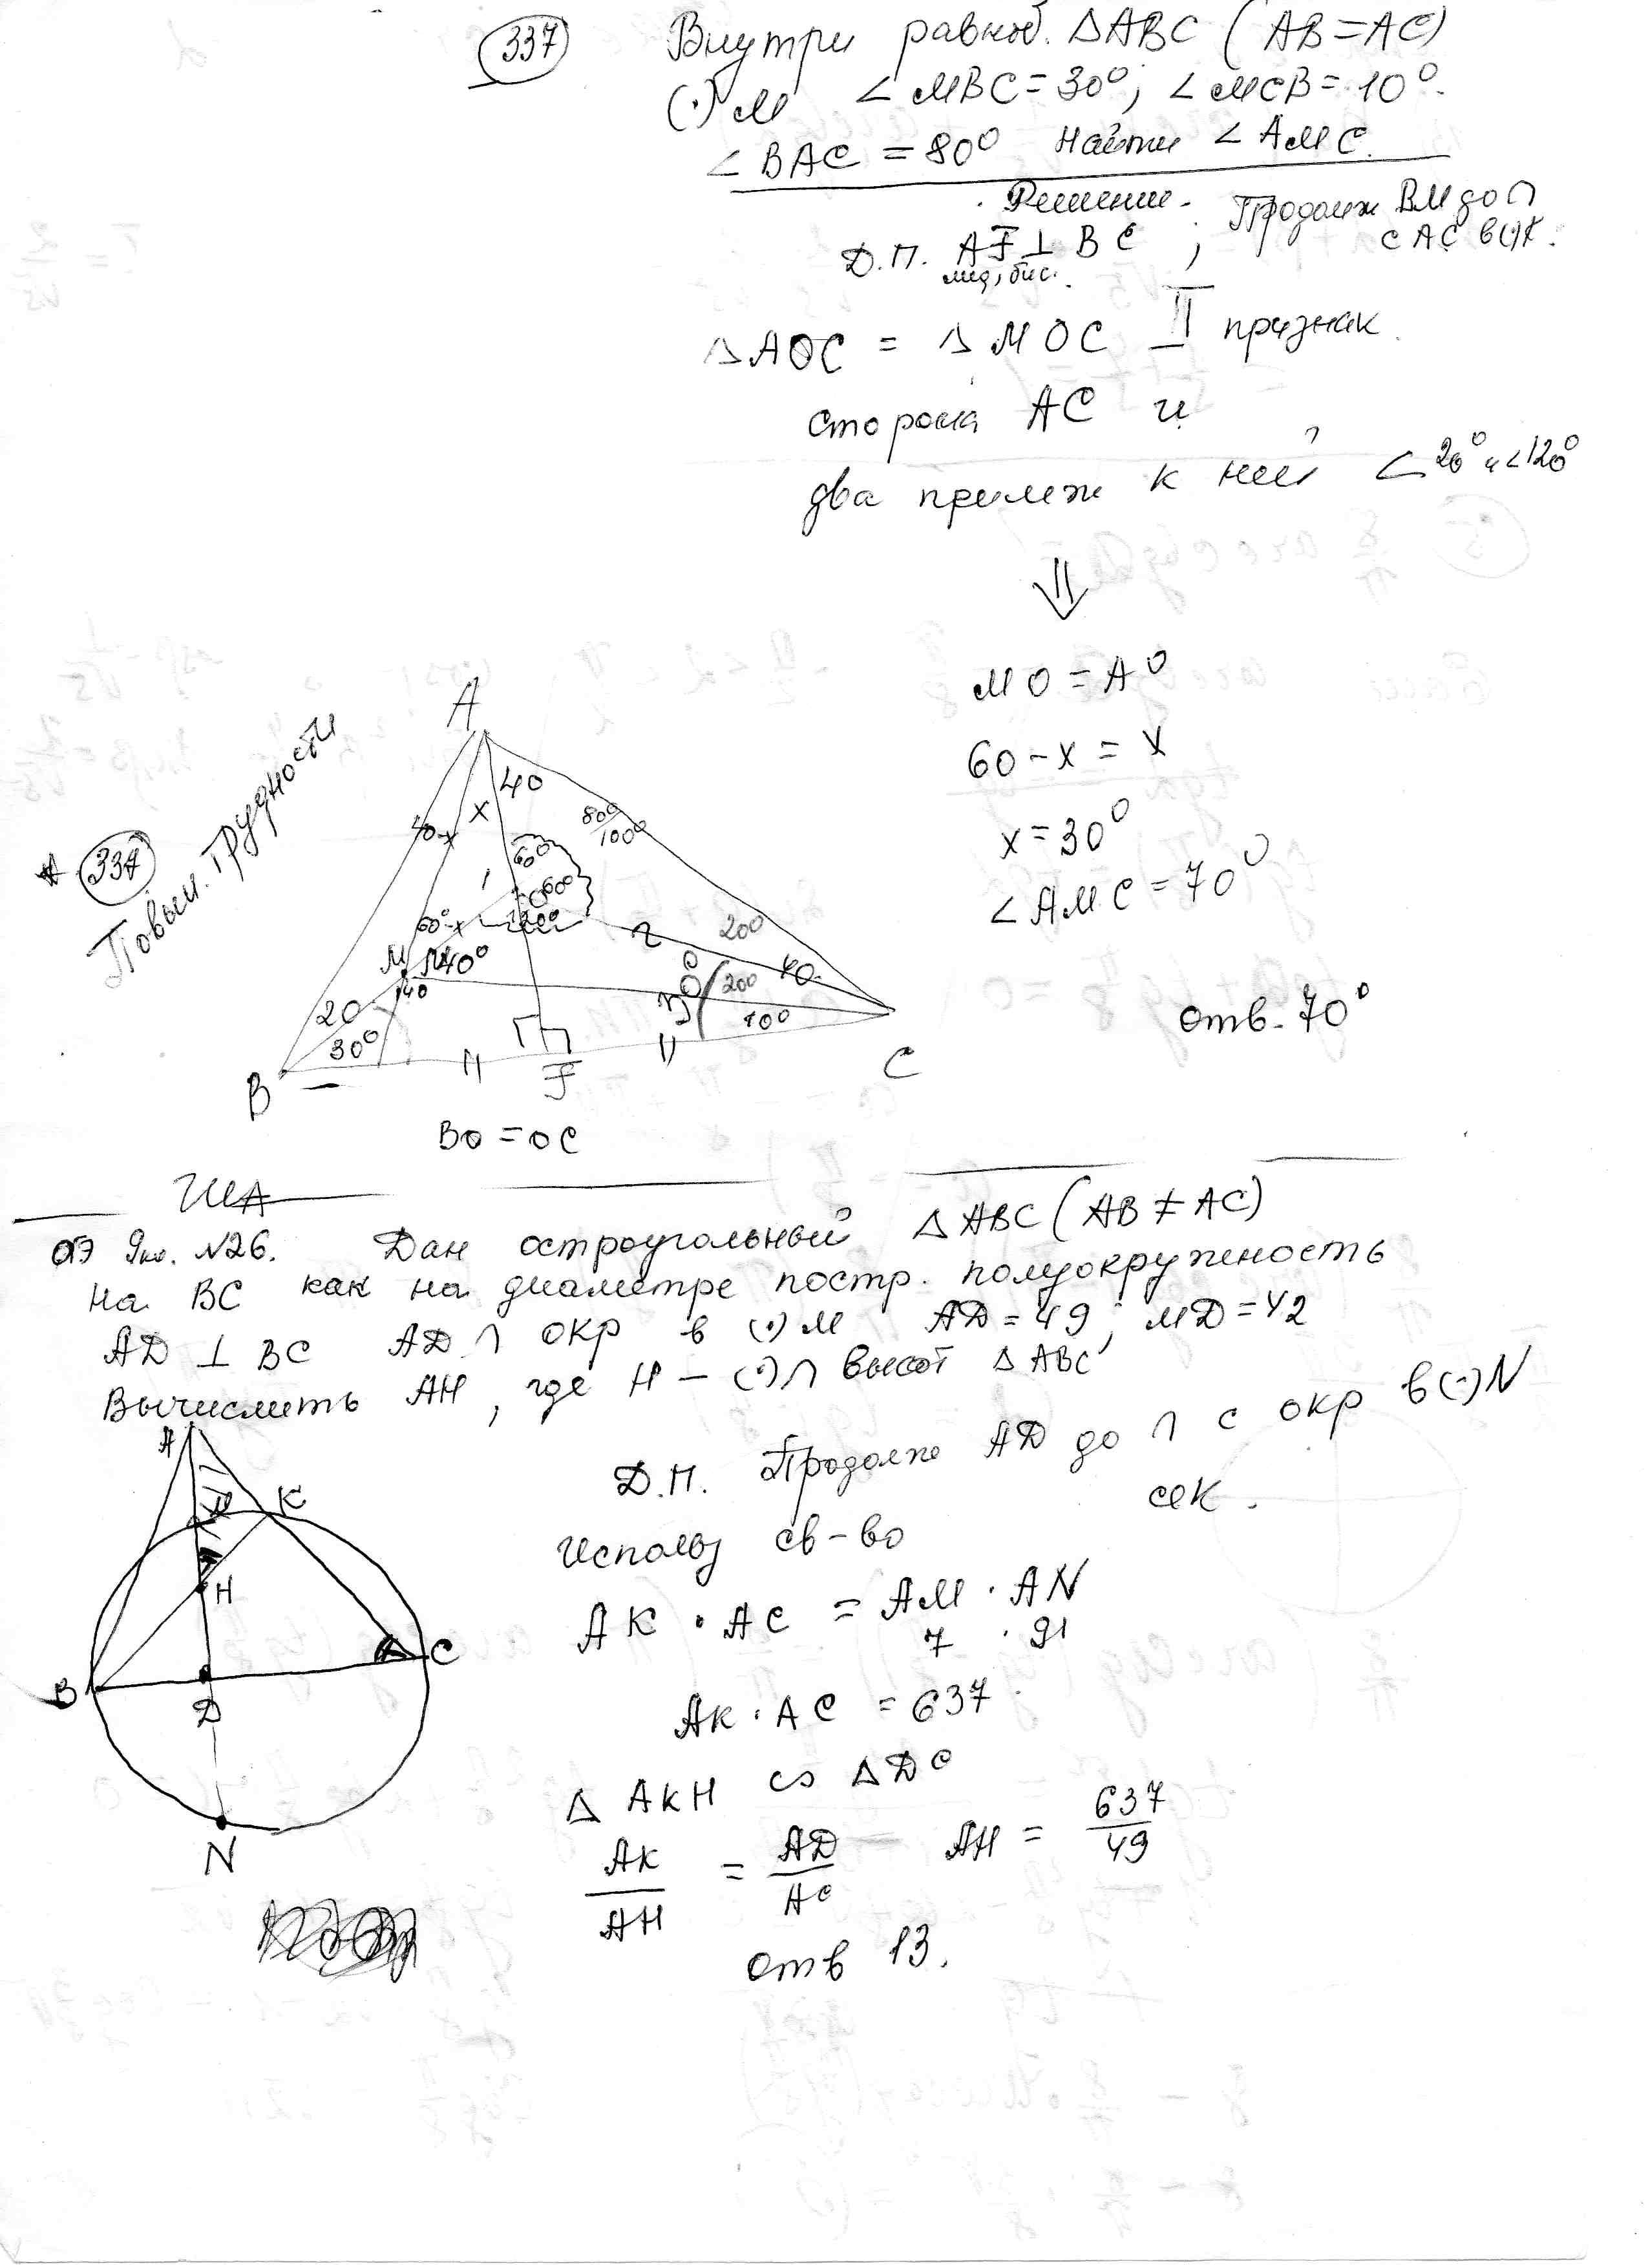 337
Внутри равноб. △ABC (AB=AC)
(·) M ∠MBC=30°; ∠MCB=10°.
∠BAC=80° Найти ∠AMC.
Решение.
Д.П. AF⊥BC; Продолж BM до ∩
мед, бис. с AC в(·)K.
△AOC = △MOC II признак.
сторона AC и
два прилеж к ней ∠20° и ∠120°
⇓
MO=AO
60-x=x
x=30°
∠AMC=70°
Отв. 70°
337
Повыш. трудности
A
40
x
40-x
80°
100°
60°
60°
120°
60°-x
20°
M
40°
140
20
30°
20°
40
10°
B
F
C
BO=OC
ОГЭ 9кл. №26. Дан остроугольный △ABC (AB≠AC)
на BC как на диаметре постр. полуокружность
AD⊥BC AD∩ окр в (·) M AD=49; MD=42
Вычислить AH, где H – (·)∩ высот △ABC
Д.П. Продолж AD до ∩ с окр в(·)N
сек.
Использ св-во
AK · AC = AM · AN
7 · 91
AK · AC = 637
△AKH ∽ △DC
AK/AH = AD/AC AH = 637/49
Отв 13.
A
M
K
H
B
D
C
N